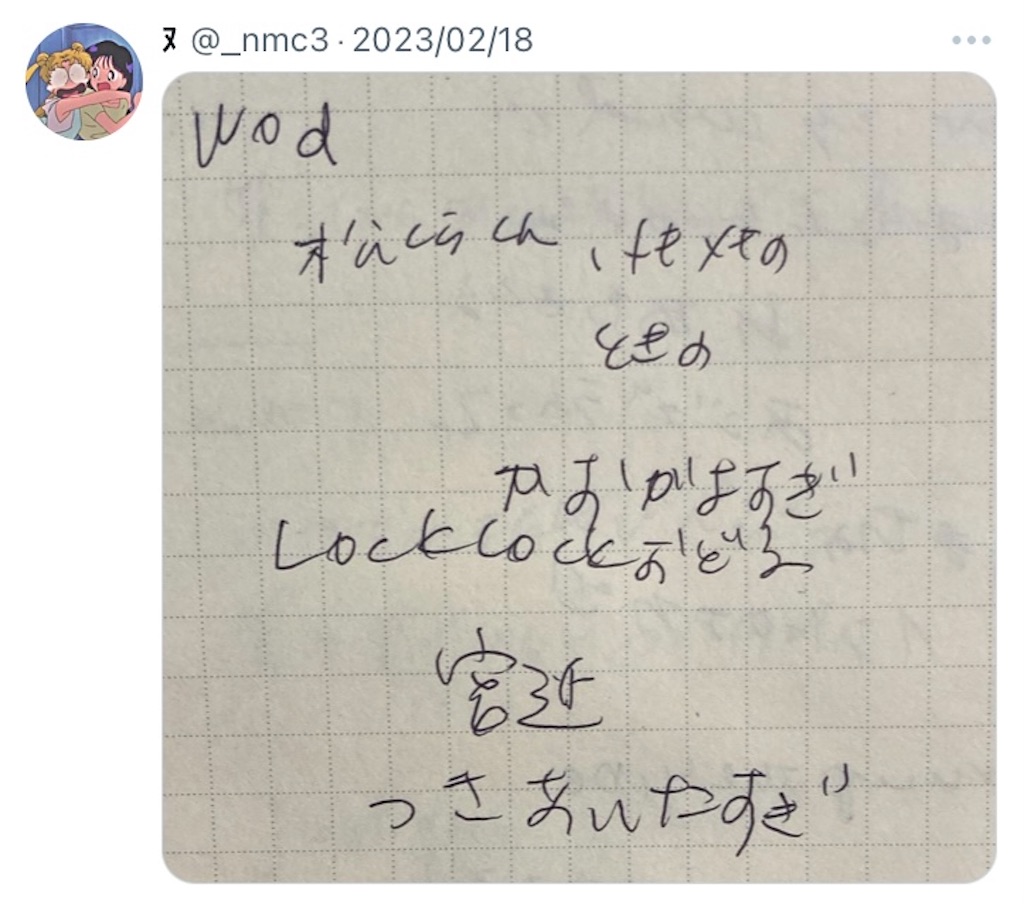 ヌ @_nmc3 · 2023/02/18
Wod
松倉くん、
ときの
かおがよすぎ
LockLockおどる
宮近
つきあいたすぎ